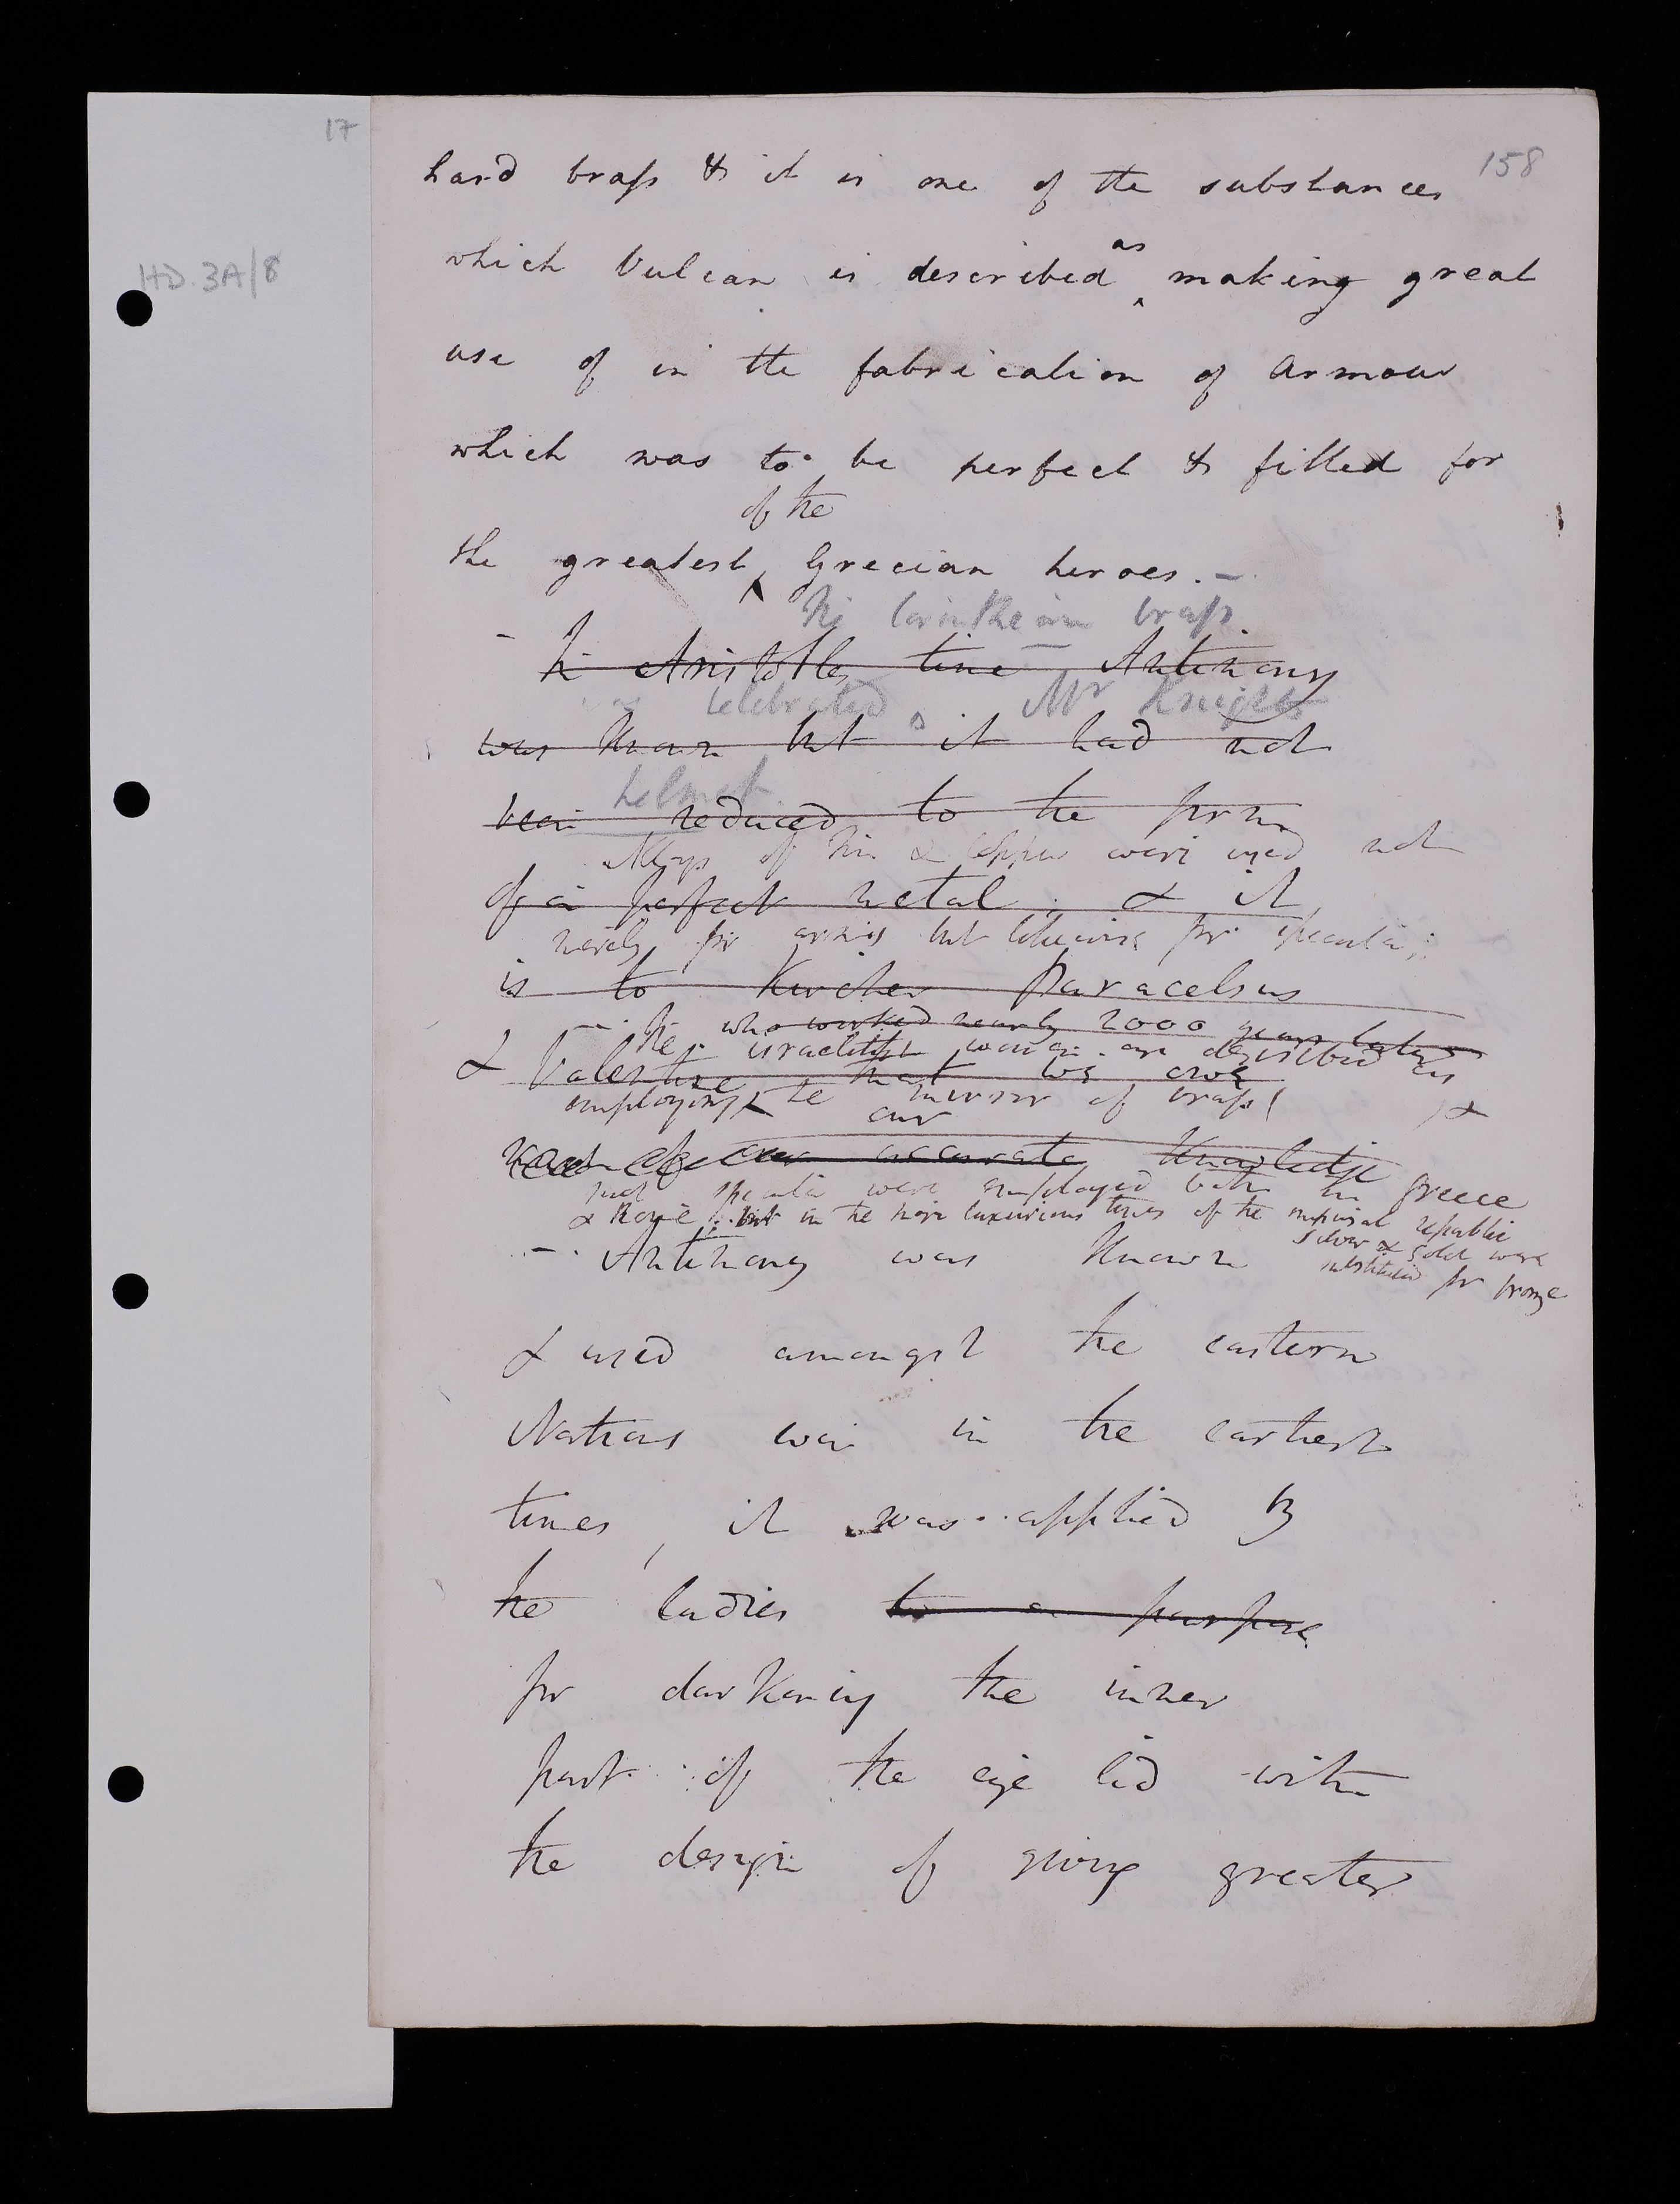 17
158
HD. 3A/8
hard brass & it is one of the substances
which Vulcan is described as making great
use of in the fabrication of armour
which was to be perfect & fitted for
of the
the greatest Grecian heroes. -
The Corinthian brass.
- In Aristotles time Antimony
was celebrated Mr Knights
was known but it had not
helmet.
been reduced to the form
Alloys of tin & Copper were used not
of a perfect metal. & it
merely for arms but likewise for specula;
is to Kircher Paracelsus
who worked nearly 2000 years later
The israelitish women are described as
& Valentine that we owe
employing the mirror of brass &
our
our accurate knowledge
such specula were employed both in Greece
& Rome; but in the more luxurious times of the republic
silver & gold were
substituted for bronze
- Antimony was known
& used amongst the eastern
Nations even in the earliest
times, it was applied by
the ladies to a purpose
for darkening the inner
part of the eye lid with
the design of giving greater